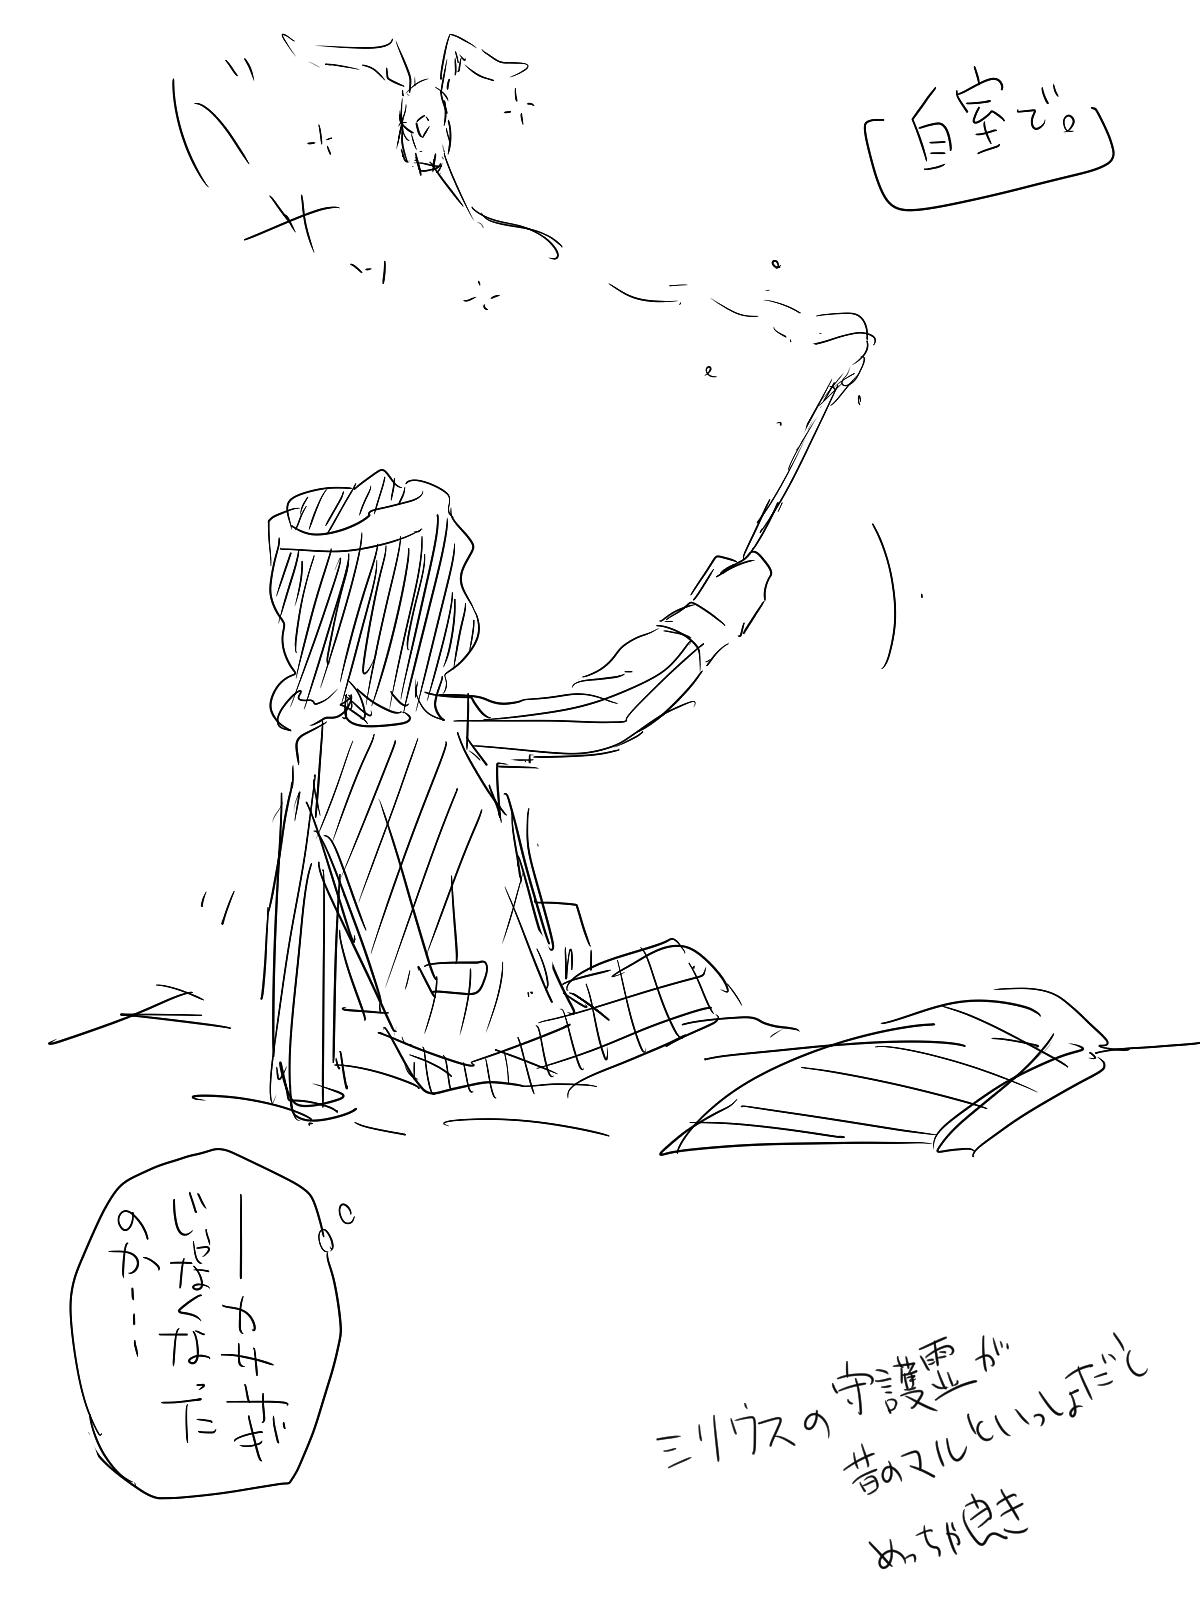 自室で。
―カササギ
じゃなくなった
のか…
ミリウスの守護霊が
昔のマルといっしょだと
めっちゃ良き